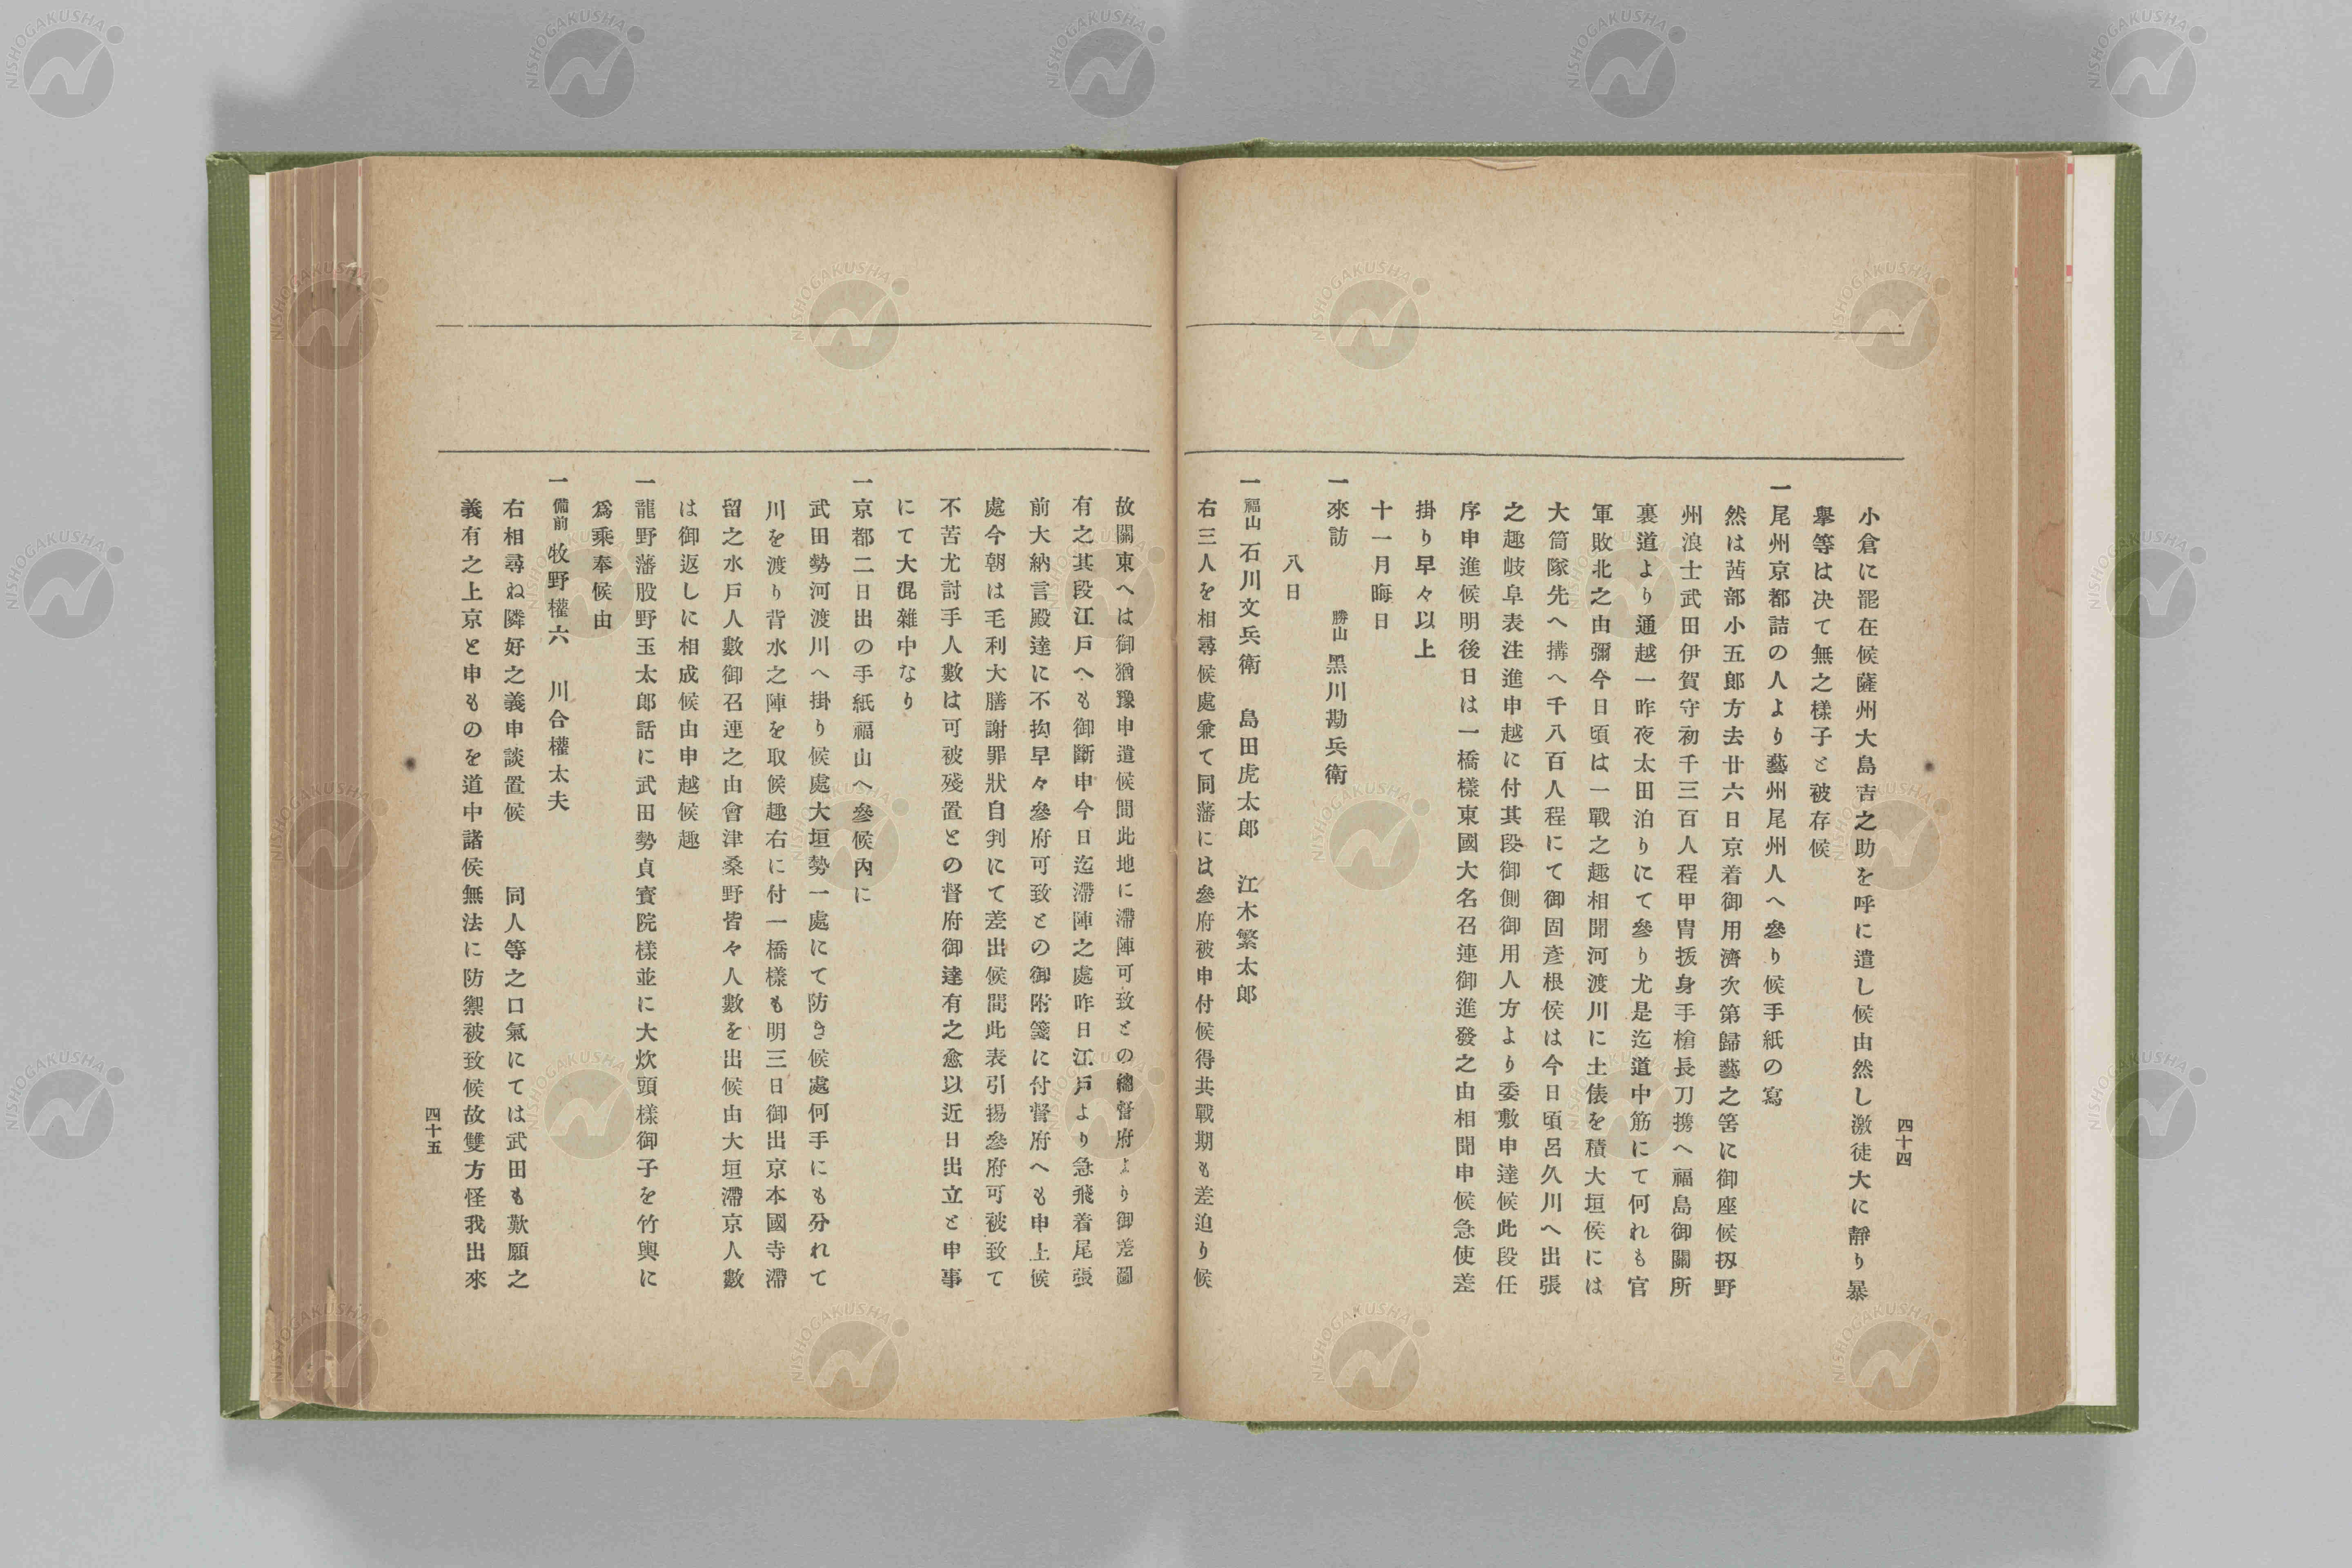 四十四
小倉に罷在候薩州大島吉之助を呼に遣し候由然し激徒大に靜り暴
擧等は决て無之樣子と被存候
一尾州京都詰の人より藝州尾州人へ參り候手紙の寫
然は茜部小五郎方去廿六日京着御用濟次第歸藝之筈に御座候扨野
州浪士武田伊賀守初千三百人程甲冑拔身手槍長刀携へ福島御關所
裏道より通越一昨夜太田泊りにて參り尤是迄道中筋にて何れも官
軍敗北之由彌今日頃は一戰之趣相聞河渡川に土俵を積大垣侯には
大筒隊先へ搆へ千八百人程にて御固彥根侯は今日頃呂久川へ出張
之趣岐阜表注進申越に付其段御側御用人方より委敷申達候此段任
序申進候明後日は一橋樣東國大名召連御進發之由相聞申候急使差
掛り早々以上
十一月晦日
一來訪 勝山 黑川勘兵衞
八日
一福山 石川文兵衞 島田虎太郎 江木繁太郎
右三人を相尋候處兼て同藩には參府被申付候得共戰期も差迫り候
故關東へは御猶豫申遣候間此地に滯陣可致との總督府より御差圖
有之其段江戶へも御斷申今日迄滯陣之處昨日江戶より急飛着尾張
前大納言殿達に不拘早々參府可致との御附箋に付督府へも申上候
處今朝は毛利大膳謝罪狀自判にて差出候間此表引揚參府可被致て
不苦尤討手人數は可被殘置との督府御達有之愈以近日出立と申事
にて大混雜中なり
一京都二日出の手紙福山へ參候內に
武田勢河渡川へ掛り候處大垣勢一處にて防き候處何手にも分れて
川を渡り背水之陣を取候趣右に付一橋樣も明三日御出京本國寺滯
留之水戶人數御召連之由會津桑野皆々人數を出候由大垣滯京人數
は御返しに相成候由申越候趣
一龍野藩股野玉太郎話に武田勢貞賓院樣並に大炊頭樣御子を竹輿に
爲乘奉候由
一備前 牧野權六 川合權太夫
右相尋ね隣好之義申談置候 同人等之口氣にては武田も歎願之
義有之上京と申ものを道中諸侯無法に防禦被致候故雙方怪我出來
四十五
NISHOGAKUSHA